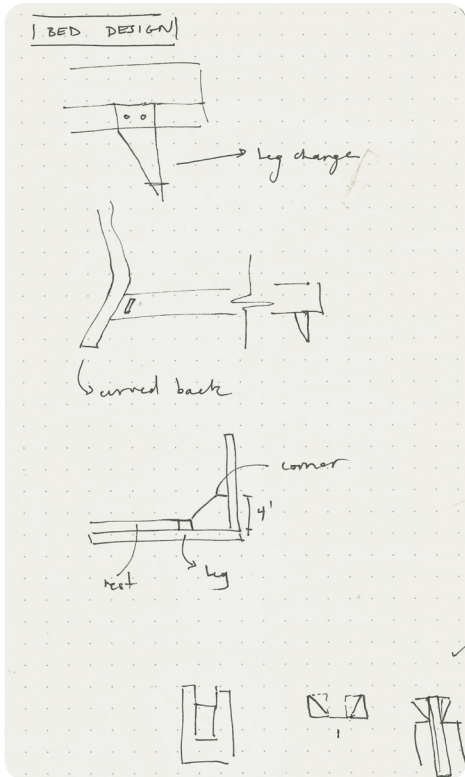 BED DESIGN
leg change
curved back
corner
4'
rest
leg